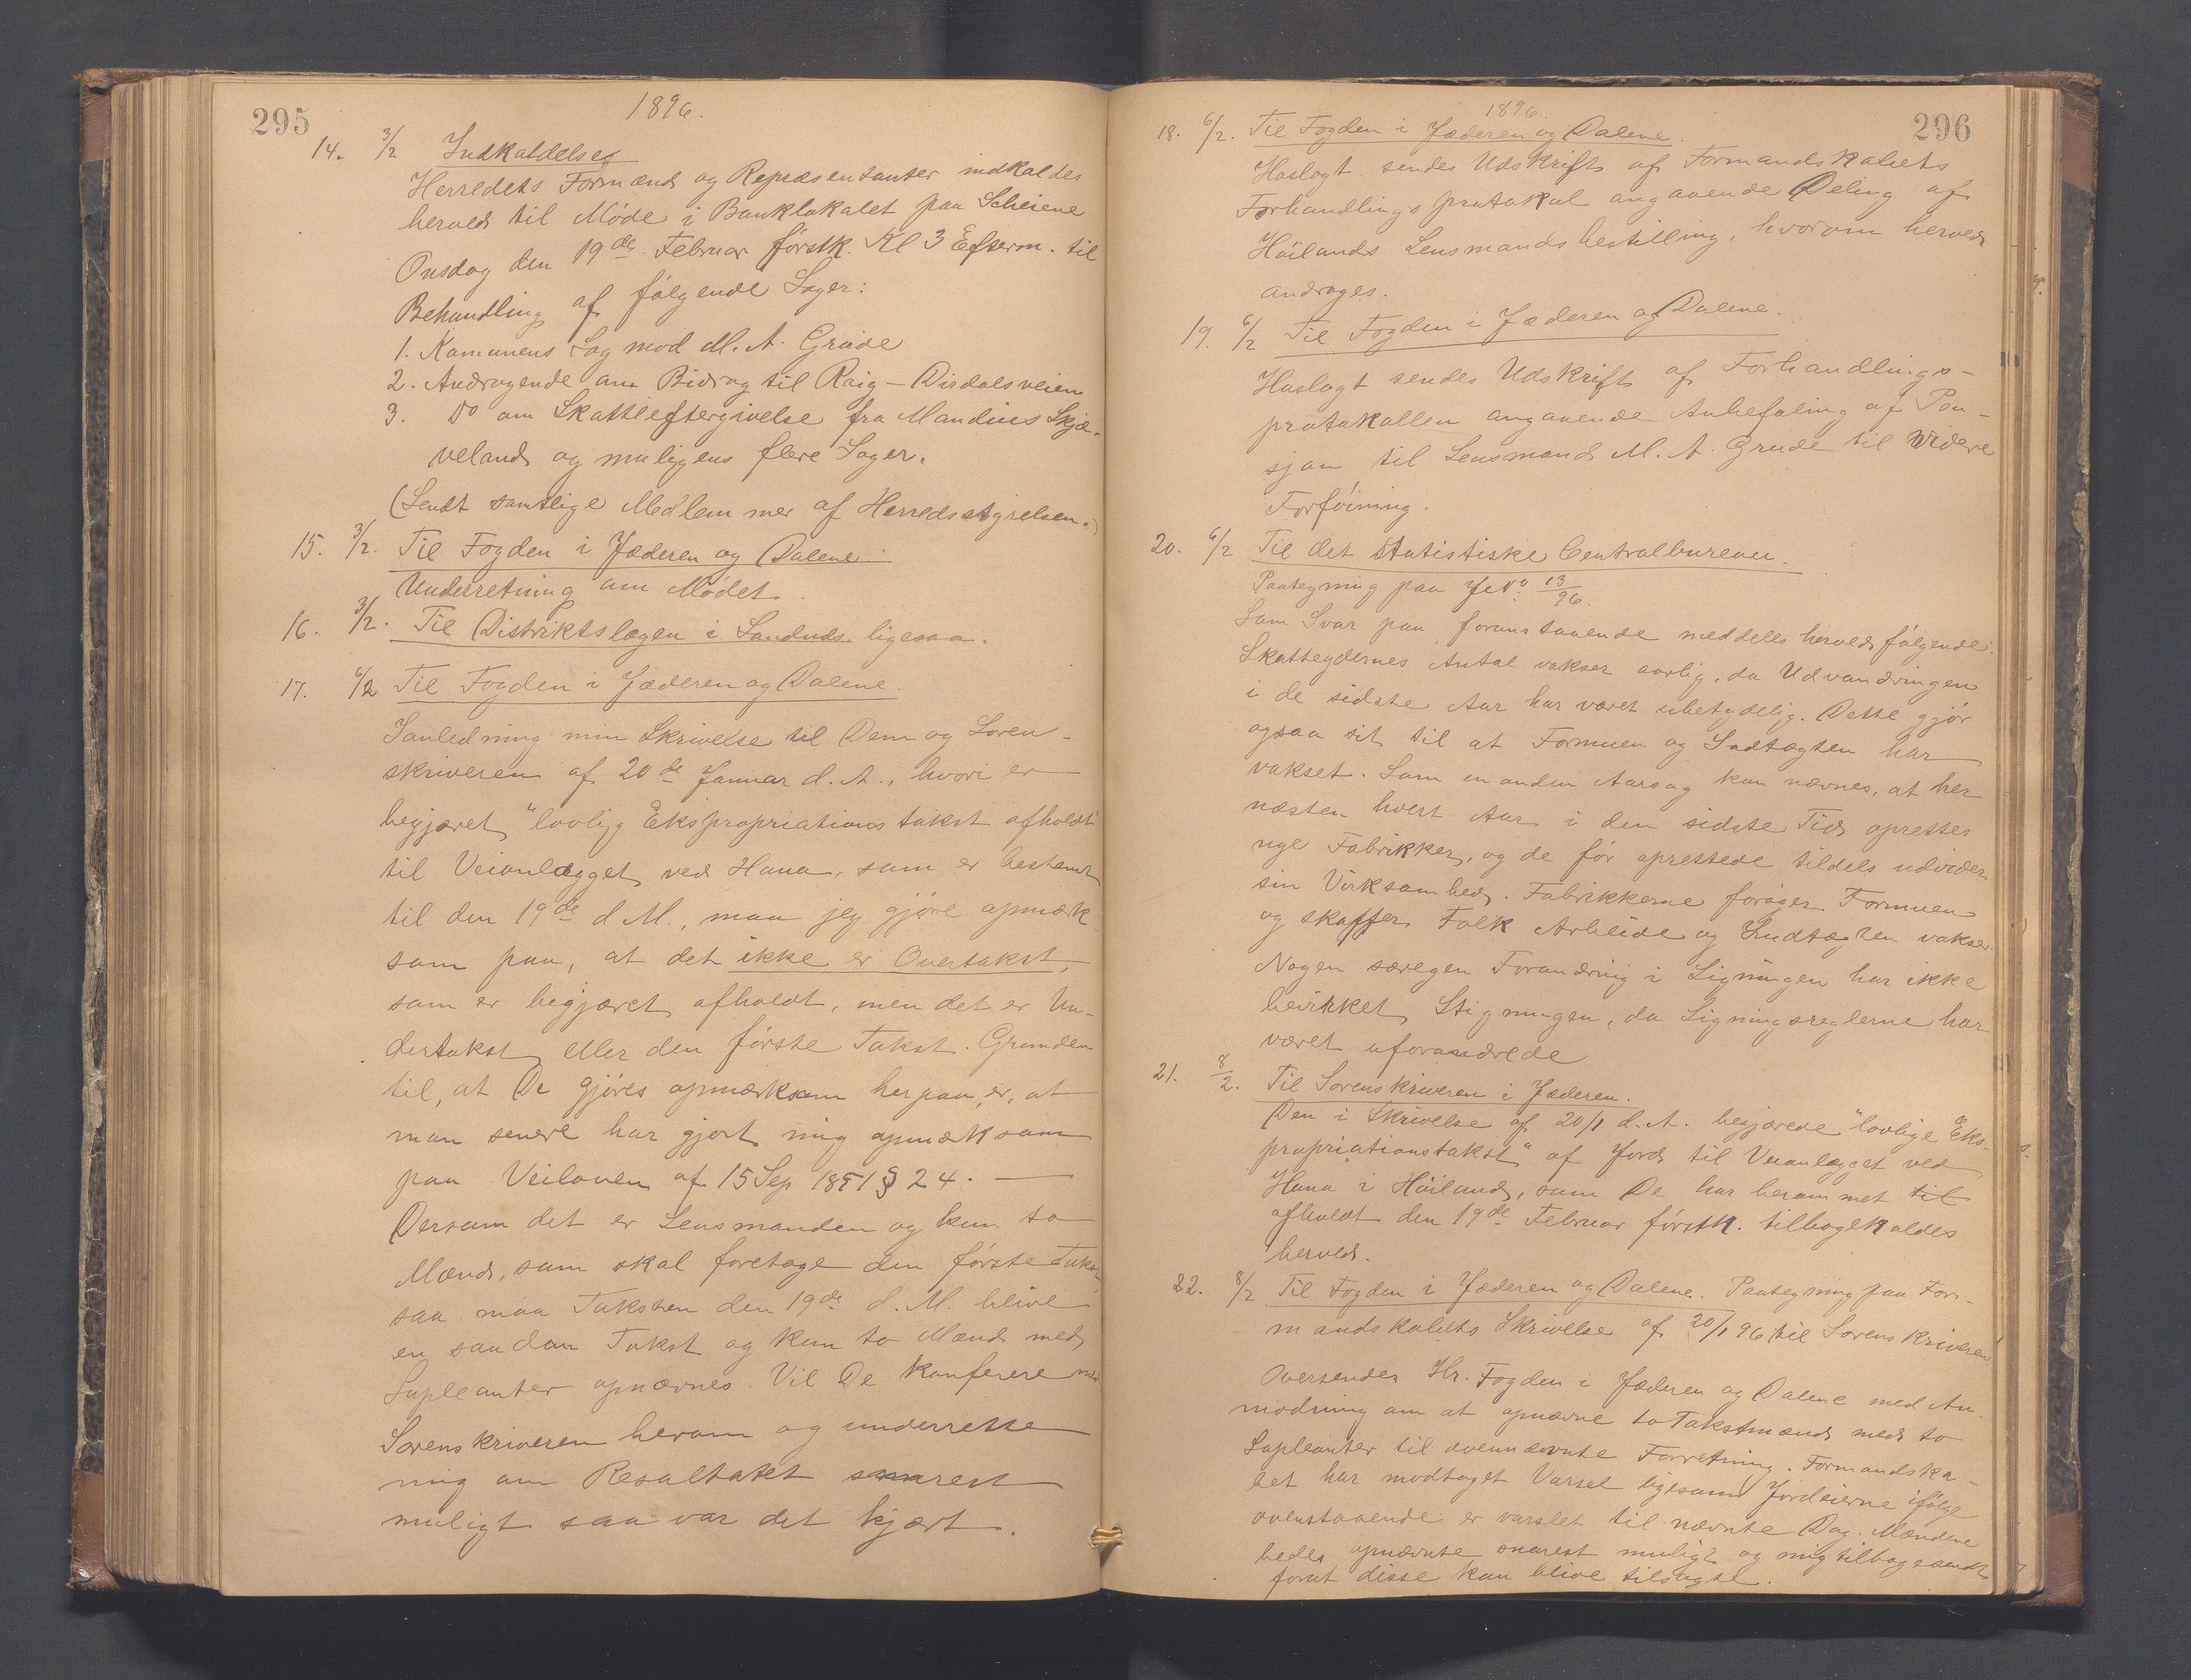 295
1896.
14. 3/2 Indkaldelse
Herredets Formænd og Repræsentanter indkaldes
herved til Møde i Banklokalet paa Scheiene
Onsdag den 19de Februar førstk. Kl 3 Efterm. til
Behandling af følgende Sager:
1. Komunens Sag mod M. A. Grude
2. Andragende om Bidrag til Raig-Dirdalsveien
3. Do om Skatteeftergivelse fra Mandius Skjæ-
veland og muligens flere Sager.
(Sendt samtlige Medlemmer af Herredsstyrelsen.)
15. 3/2. Til Fogden i Jæderen og Dalene.
Underretning om Mødet.
16. 3/2. Til Distriktslægen i Sandnds. ligesaa.
17. 6/2 Til Fogden i Jæderen og Dalene.
Ianledning min Skrivelse til Dem og Soren-
skriveren af 20de Januar d. A., hvori er
begjæret "lovlig Ekspropriationstakst afholdt
til Veianlægget ved Hana, som er bestemt
til den 19de d M., maa jeg gjøre opmærk
som paa, at det ikke er Overtakst,
som er begjæret afholdt, men det er Un-
dertakst eller den første Takst. Grunden
til, at De gjøres opmærksom herpaa, er, at
man senere har gjort mig opmærksom
paa Veiloven af 15 Sep 1851 § 24. —
Dersom det er Lensmanden og kun to
Mænd, som skal foretage den første Takst
saa maa Taksten den 19de d. M. blive
en saadan Takst og kun to Mænd med
Supleanter opnævnes. Vil De konferere med
Sorenskriveren herom og underrette
mig om Resultatet snarest
muligt saa var det kjært.
296
1896.
18. 6/2. Til Fogden i Jæderen og Dalene.
Hoslagt sendes Udskrift af Formandskabets
Forhandlingsprotokol angaaende Deling af
Høilands Lensmandsbestilling, hvorom herved
andrages.
19. 6/2 Til Fogden i Jæderen og Dalene.
Hoslagt sendes Udskrift af Forhandlings-
protokollen angaaende Anbefaling af Pen-
sjon til Lensmand M. A. Grude til videre
Forføining.
20. 6/2 Til det statistiske Centralbureau.
Paategning paa JNo 13/96.
Som Svar paa foranstaaende meddeles herved følgende:
Skatteydernes Antal vakser aarlig, da Udvandringen
i de sidste Aar har været ubetydelig. Dette gjør
ogsaa sit til at Formuen og Indtægten har
vakset. Som en anden Aarsag kan nævnes, at her
næsten hvert Aar i den sidste Tid oprettes
nye Fabrikker, og de før oprettede tildels udvider
sin Virksomhed. Fabrikkerne forøger Formuen
og skaffer Folk Arbeide og Indtægten vakser.
Nogen særegen Forandring i Ligningen har ikke
bevirket Stigningen, da Ligningsreglerne har
været uforandrede
21. 8/2. Til Sorenskriveren i Jæderen.
Den i Skrivelse af 20/1 d. A. begjærede "lovlige Eks-
propriationstakst" af Jord til Veianlægget ved
Hana i Høiland, som De har berammet til
afholdt den 19de Februar førstk. tilbagekaldes
herved.
22. 8/2 Til Fogden i Jæderen og Dalene. Paategning paa For-
mandskabets Skrivelse af 20/1 96 til Sorenskriveren
Oversendes Hr. Fogden i Jæderen og Dalene med An-
modning om at opnævne to Takstmænd med to
Supleanter til ovennævnte Forretning. Formandska-
bet har modtaget Varsel ligesom Jordeierne ifølge
ovenstaaende er varslet til nævnte Dag. Mændene
bedes opnævnte snarest muligt og mig tilbagesendt
forat disse kan blive tilsagte.